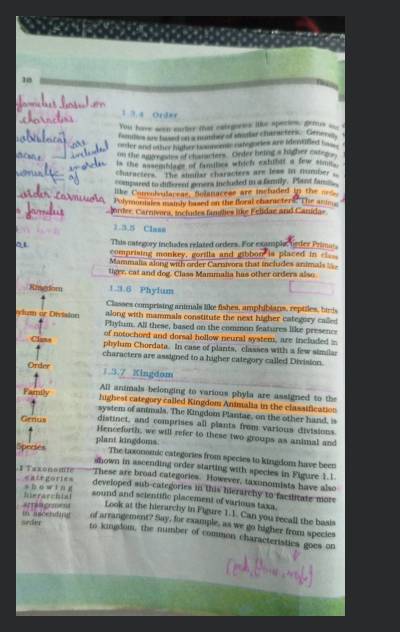 10
families based on
characters.
are
included
in order
of
order carnivora
families
1.3.4 Order
You have seen earlier that categories like species, genus and
families are based on a number of similar characters. Generally,
order and other higher taxonomic categories are identified based
on the aggregates of characters. Order being a higher category,
is the assemblage of families which exhibit a few similar
characters. The similar characters are less in number as
compared to different genera included in a family. Plant families
like Convolvulaceae, Solanaceae are included in the order
Polymoniales mainly based on the floral characters. The animal
order, Carnivora, includes families like Felidae and Canidae.
1.3.5 Class
This category includes related orders. For example, order Primata
comprising monkey, gorilla and gibbon is placed in class
Mammalia along with order Carnivora that includes animals like
tiger, cat and dog. Class Mammalia has other orders also.
1.3.6 Phylum
Classes comprising animals like fishes, amphibians, reptiles, birds
along with mammals constitute the next higher category called
Phylum. All these, based on the common features like presence
of notochord and dorsal hollow neural system, are included in
phylum Chordata. In case of plants, classes with a few similar
characters are assigned to a higher category called Division.
1.3.7 Kingdom
All animals belonging to various phyla are assigned to the
highest category called Kingdom Animalia in the classification
system of animals. The Kingdom Plantae, on the other hand, is
distinct, and comprises all plants from various divisions.
Henceforth, we will refer to these two groups as animal and
plant kingdoms.
The taxonomic categories from species to kingdom have been
shown in ascending order starting with species in Figure 1.1.
These are broad categories. However, taxonomists have also
developed sub-categories in this hierarchy to facilitate more
sound and scientific placement of various taxa.
Look at the hierarchy in Figure 1.1. Can you recall the basis
of arrangement? Say, for example, as we go higher from species
to kingdom, the number of common characteristics goes on
Kingdom
ylum or Division
Class
Order
Family
Genus
Species
.1 Taxonomic
categories
showing
hierarchial
arrangement
in ascending
order